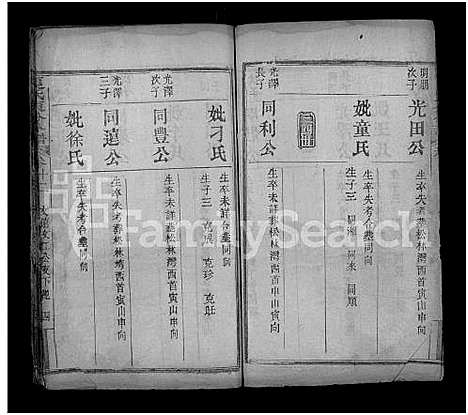 明朋
次子
光田公
生卒失考合墓同向
妣童氏
生子三 同順
光澤
長子
同利公
生卒未詳葬松林灣西首寅山申向
妣刁氏
生卒未詳合墓同向
生子三 克珍 克旺
光澤
次子
同豐公
生卒未詳葬松林灣西首寅山申向
光澤
三子
同遠公
生卒失考葬松林灣西首寅山申向
妣徐氏
生卒失考合墓同向
FamilySearch